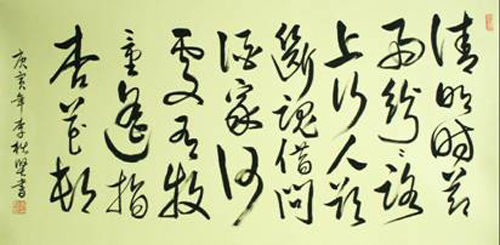 清明时节
雨紛紛路
上行人欲
斷魂借問
酒家何
處有牧
童遥指
杏花村
庚寅年李賢書